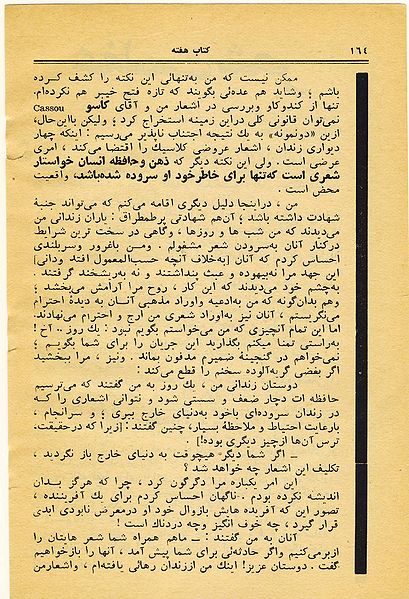 ۱۶٤
کتاب هفته
ممکن نیست که من به‌تنهائی این نکته را کشف کرده
باشم ؛ وشاید هم عده‌ئی بگویند که تازه فتح خیبر هم نکرده‌ام.
تنها از کندوکاو وبررسی در اشعار من و آقای کاسو Cassou
نمی‌توان قانونی کلی دراین زمینه استخراج کرد ؛ ولیکن بااین‌حال،
ازین «دونمونه» به یك نتیجه اجتناب ناپذیر می‌رسیم : اینکه چهار
دیواری زندان ، اشعار عروضی کلاسیك را اقتضا می‌کند ، امری
عرضی است . ولی این نکته دیگر که ذهن وحافظه انسان خواستار
شعری است که‌تنها برای خاطرخود او سروده شده‌باشد، واقعیت
محض است .
من ، دراینجا دلیل دیگری اقامه می‌کنم که می‌تواند جنبهٔ
شهادت داشته باشد ؛ آن‌هم شهادتی پرطمطراق : یاران زندانی من
می‌دیدند که من شب ها و روزها ، وگاهی در سخت ترین شرایط
درکنار آنان به‌سرودن شعر مشغولم . ومن باغرور وسربلندی
احساس کردم که آنان [به‌خلاف آنچه حسب‌المعمول افتد ودانی]
این جهد مرا نه‌بیهوده و عبث بنداشتند و نه به‌ریشخند گرفتند .
به‌چشم خود می‌دیدند که این کار ، روح مرا آرامش می‌بخشد ؛
وهم بدان‌گونه که من به‌ادعیه واوراد مذهبی آنــان به دیدهٔ احترام
می‌نگریستم ، آنان نیز به‌اوراد شعری من ارج و احترام می‌نهادند.
اما این تمام آنچیزی که من می‌خواستم بگویم نبود : یك روز .. آخ !
به‌راستی تمنا میکنم بگذارید این جریان را برای شما بگویم ؛
نمی‌خواهم در گنجینهٔ ضمیرم مدفون بماند . ونیز ، مرا ببخشید
اگر بغضی گریه‌آلوده سخنم را قطع می‌کند :
دوستان زندانی من ، یك روز به من گفتند که می‌ترسیم
حافظه ات دچار ضعف و سستی شود و نتوانی اشعاری را کــه
در زندان سروده‌ای باخود به‌دنیای خارج ببری ؛ و سرانجام ،
بارعایت احتیاط و ملاحظهٔ بسیار، چنین گفتند : [زیرا که درحقیقت،
ترس آن‌ها ازچیز دیگری بوده!] .
ــ اگر شما دیگر هیچوقت به دنیای خارج باز نگردید ،
تکلیف این اشعار چه خواهد شد ؟
این امر یکباره مرا دگرگون کرد ، چرا که هرگز بــدان
اندیشه نکرده بودم . ناگهان احساس کردم برای یك آفریننده ،
تصور این که آفریده هایش بازوال خود او درمعرض نابودی ابدی
قرار گیرد ، چه خوف انگیز وچه دردناك است !
آنان به من گفتند : ــ ماهم همراه شما شعر هایتان را
ازبرمی‌کنیم واگر حادثه‌ئی برای شما پیش آمد ، آنها را بازخواهیم
گفت . دوستان عزیز! اینك من اززندان رهائی یافته‌ام ، واشعارمن